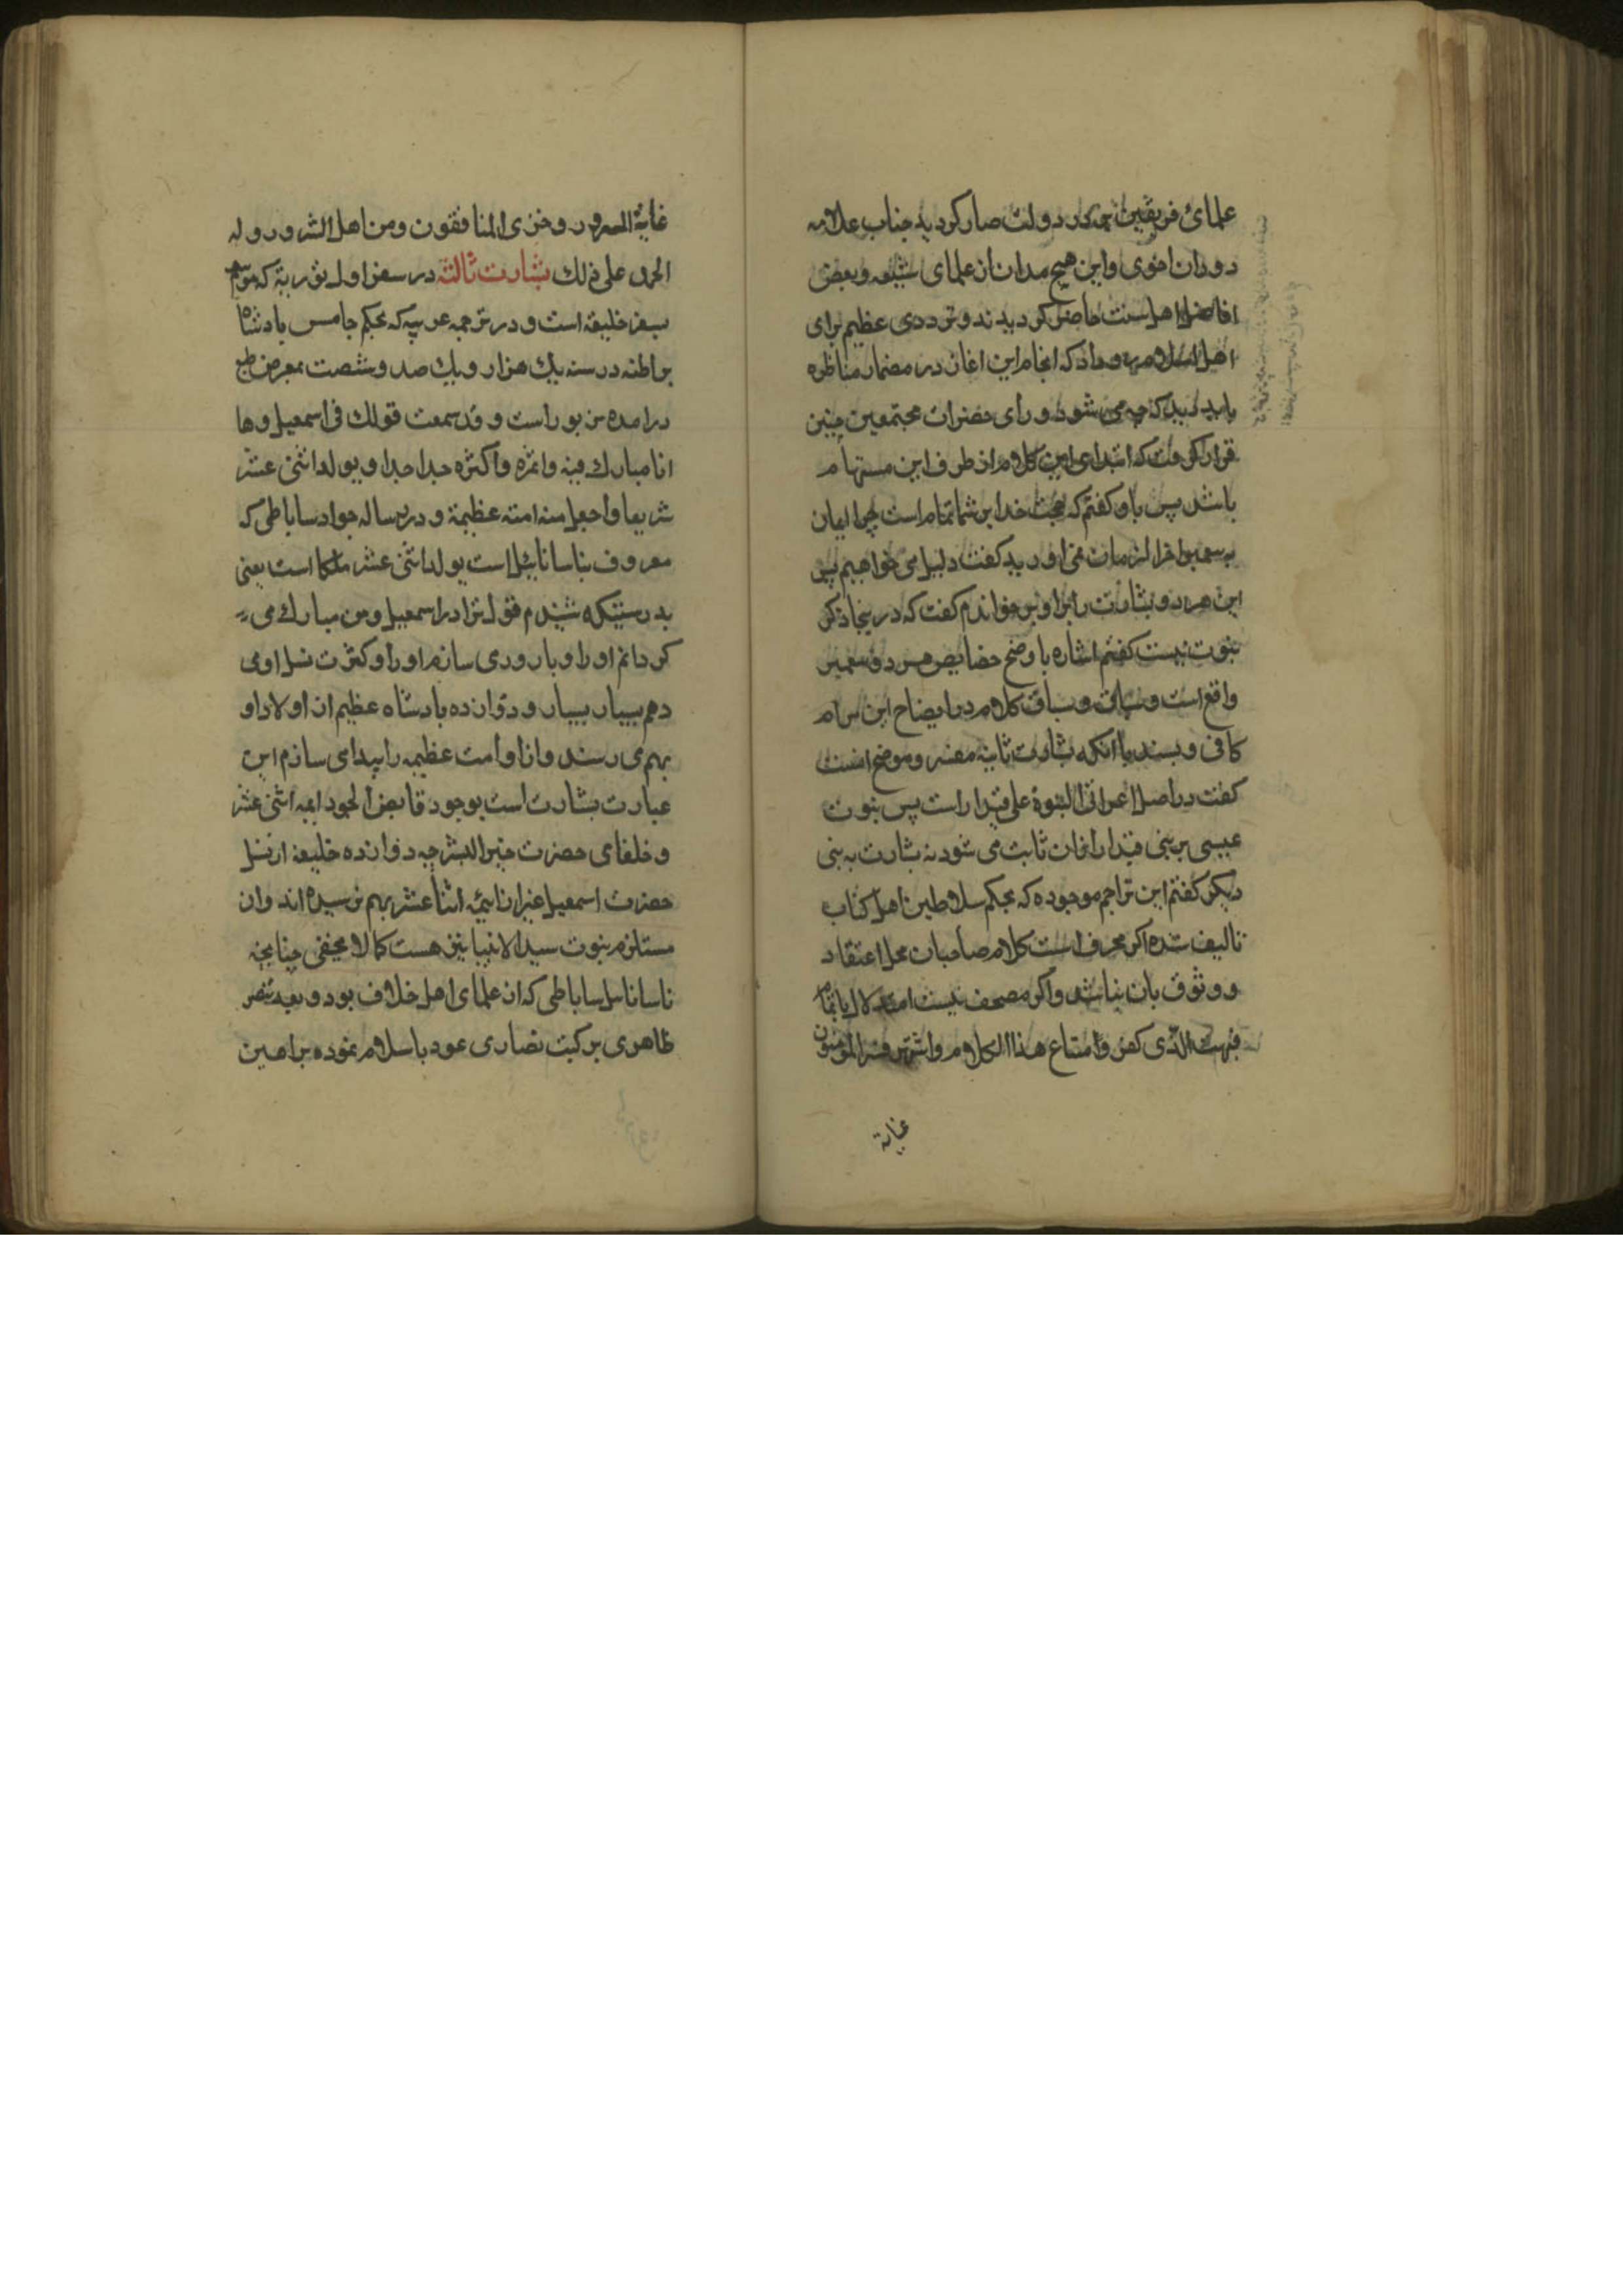 علمای فریقین بر در دولت صار کردید جناب علامه
دوران اخوی و این هیچ مدان از علمای شیعه و بعضی
افاضل اهل سنت حاضر کردیدند و ترددی عظیم برای
اهل اسلام رو داد که انجام این اغاز در مضمار مناظره
باید دید که چه می شود و رای حضرات مجتمعین چنین
قرار گرفت که ابتدای این کلام از طرف این مستهام
باشد پس باو کفتم که حجت خدا بر شما تمام است چرا ایمان
به پیغمبر اخر الزمان نمی اورید کفت دلیل می خواهیم پس
این هر دو بشارت را بر او بر خواندم کفت که در ینجا ذکر
نبوت نیست کفتم اشاره با وضح خصایص هر دو پیغمبر
واقع است و سیاق و سباق کلام در ایضاح این مرام
کافی و بسند با انکه بشارت ثانیه مفسر و موضح انست
کفت در اصل اعرافی النبوة علی قیدار است پس نبوت
عیسی بر بنی قیدار ازان ثابت می شود نه بشارت به نبی
دیکر کفتم این تراجم موجوده که بحکم سلاطین اهل کتاب
تالیف شده اکر محرف است کلام صاحبان محل اعتقاد
و وثوق بان نباشد و اکر مصحف نیست استدلال ما تمام
فبهت الذی کفر و امتاع هذا الکلام و اشتهر فسر المومنون
غایة
غایة السرور و خزی المنافقون و من اهل الشرور و له
الحمد علی ذلك بشارت ثالثه در سفر اول توریة که موسوم
بسفر خلیقه است و در ترجمه عربیه که بحکم جامس پادشاه
برطنه در سنه یك هزار و یك صد و شصت بمعرض طبع
درامده مزبور است و قد سمعت قولك فی اسمعیل و ها
انا مبارك فیه و اثمره و اکثره جدا جدا و یولد اثنی عشر
شریفا و اجعل منه امته عظیمة و در رساله جواد ساباطی که
معروف بناساناییل است یولد اثنی عشر ملکا است یعنی
بدرستیکه شنیدم قول ترا در اسمعیل و من مبارك می
کردانم او را و بارور می سازم او را و کثرت نسل او می
دهم بسیار بسیار و دوازده پادشاه عظیم از اولاد او
بهم می رسند و از او امت عظیمه را پیدا می سازم این
عبارت بشارت است بوجود فایض الجود ایمه اثنی عشر
و خلفای حضرت خیر البشر چه دوازده خلیفه از نسل
حضرت اسمعیل غیر از ایمه اثنا عشر بهم نرسیده اند و ان
مستلزم نبوت سید الانبیا نیز هست کما لا یخفی چنانچه
ناساناییل ساباطی که از علمای اهل خلاف بود و بعد تنصر
ظاهری بر کتب نصاری عود باسلام نموده براهین